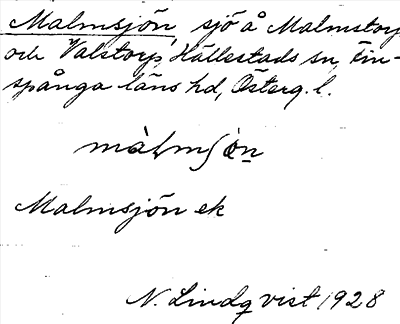 Malmsjön sjö å Malmstorp
och Valstorp, Hällestads sn, Fin-
spånga läns hd, Österg. l.
màlmʃo̤n
Malmsjön ek
N. Lindqvist 1928